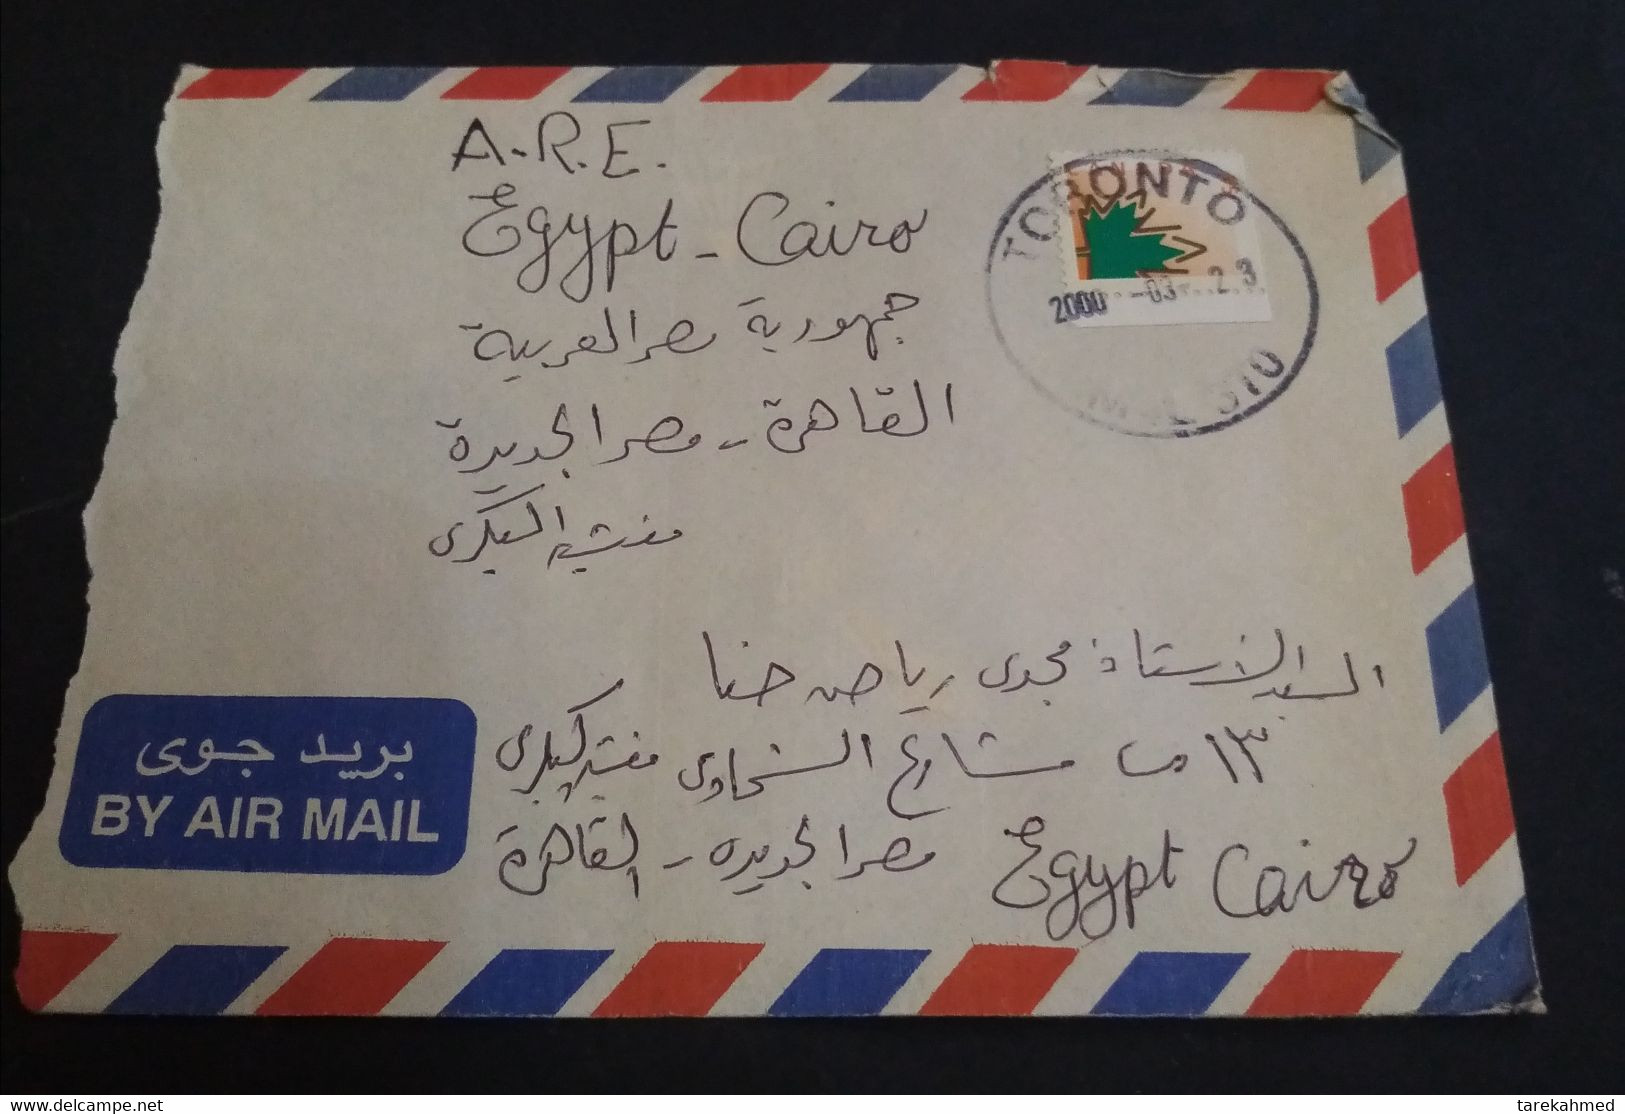 A.R.E.
Egypt - Cairo
جمهورية مصر العربية
القاهرة - مصر الجديدة
منشية البكرى
CANADA
TORONTO
2000 -03 2.3
السيد الاستاذ مجدى رياض حنا
١٣ شارع منشية البكرى
مصر الجديده - القاهرة Egypt Cairo
بريد جوى
BY AIR MAIL
delcampe.net
tarekahmed